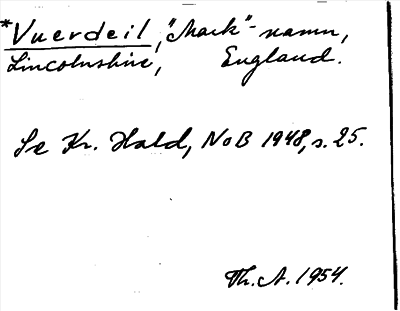 *Vuerdeil, "Mark"-namn,
Lincolnshire, England.
Se Kr. Hald, NoB 1948, s. 25.
Th. A. 1954.